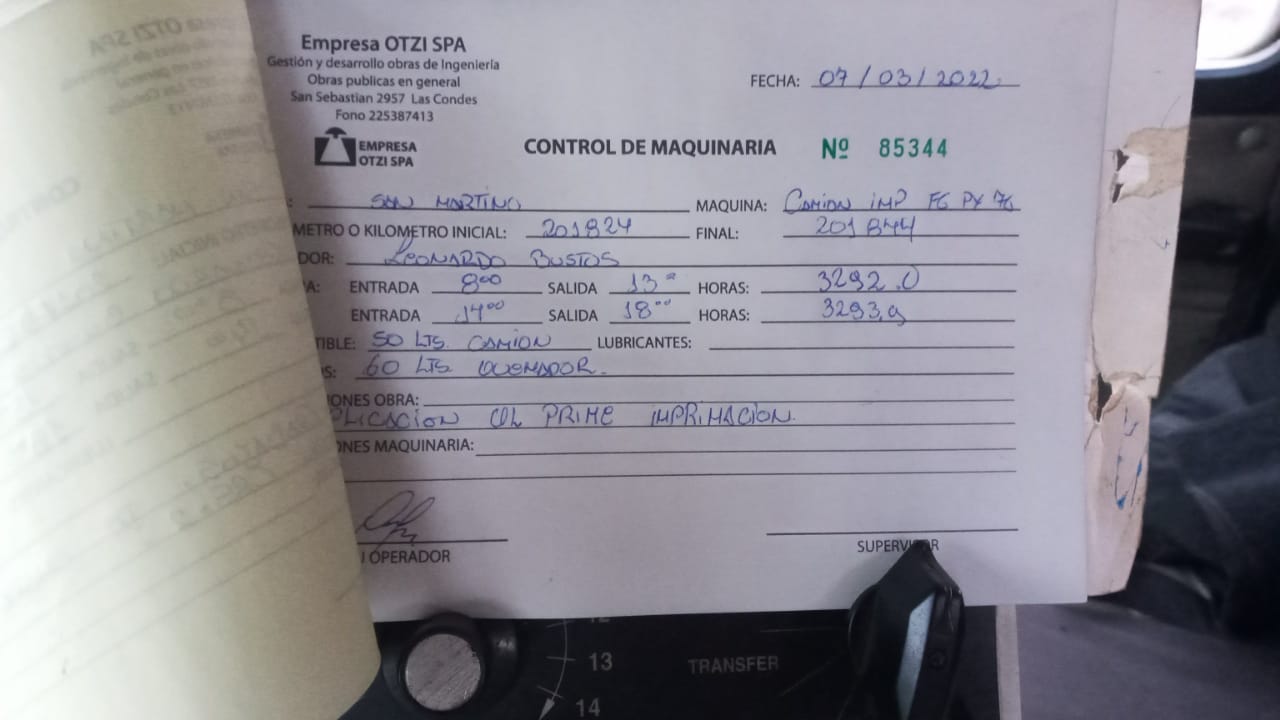 Empresa OTZI SPA
Gestión y desarrollo obras de Ingeniería
Obras publicas en general
San Sebastian 2957 Las Condes
Fono 225387413
EMPRESA
OTZI SPA
FECHA: 07/03/2022
CONTROL DE MAQUINARIA Nº 85344
: SAN MARTINO MAQUINA: CAMION IMP FG PX 76
METRO O KILOMETRO INICIAL: 201824 FINAL: 201844
DOR: LEONARDO BUSTOS
A: ENTRADA 8:00 SALIDA 13 HORAS: 3292.0
ENTRADA 14:00 SALIDA 18:00 HORAS: 3293,9
TIBLE: 50 LTS. CAMION LUBRICANTES:
S: 60 LTS QUEMADOR.
IONES OBRA:
PLICACION PRIME IMPRIMACION.
ONES MAQUINARIA:
OPERADOR SUPERVISOR
12
13 TRANSFER
14